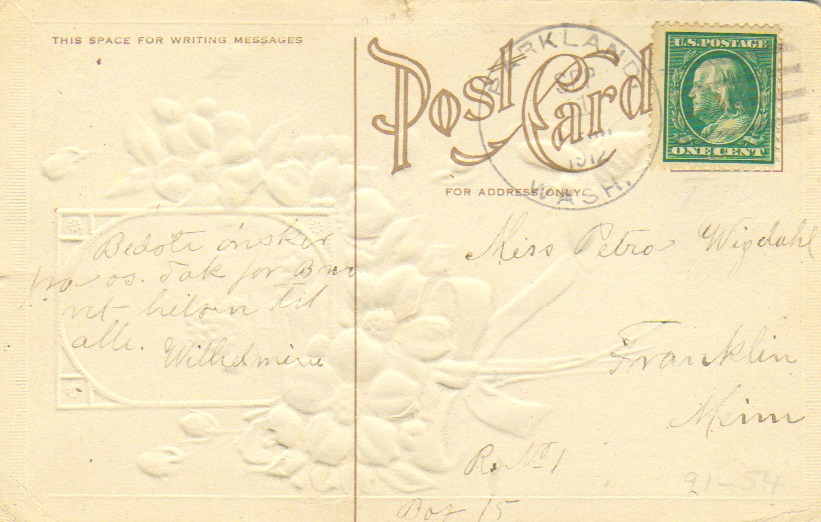 THIS SPACE FOR WRITING MESSAGES
Post Card
PARKLAND
SEP
1912
WASH.
U.S. POSTAGE
ONE CENT
FOR ADDRESS ONLY
Bedste ønsker
fra os. Tak for Brev
helsen til
alle. Wilhelmine
Miss Petra Wigdahl
Franklin
Minn
R. No 1
Box 15
91-54